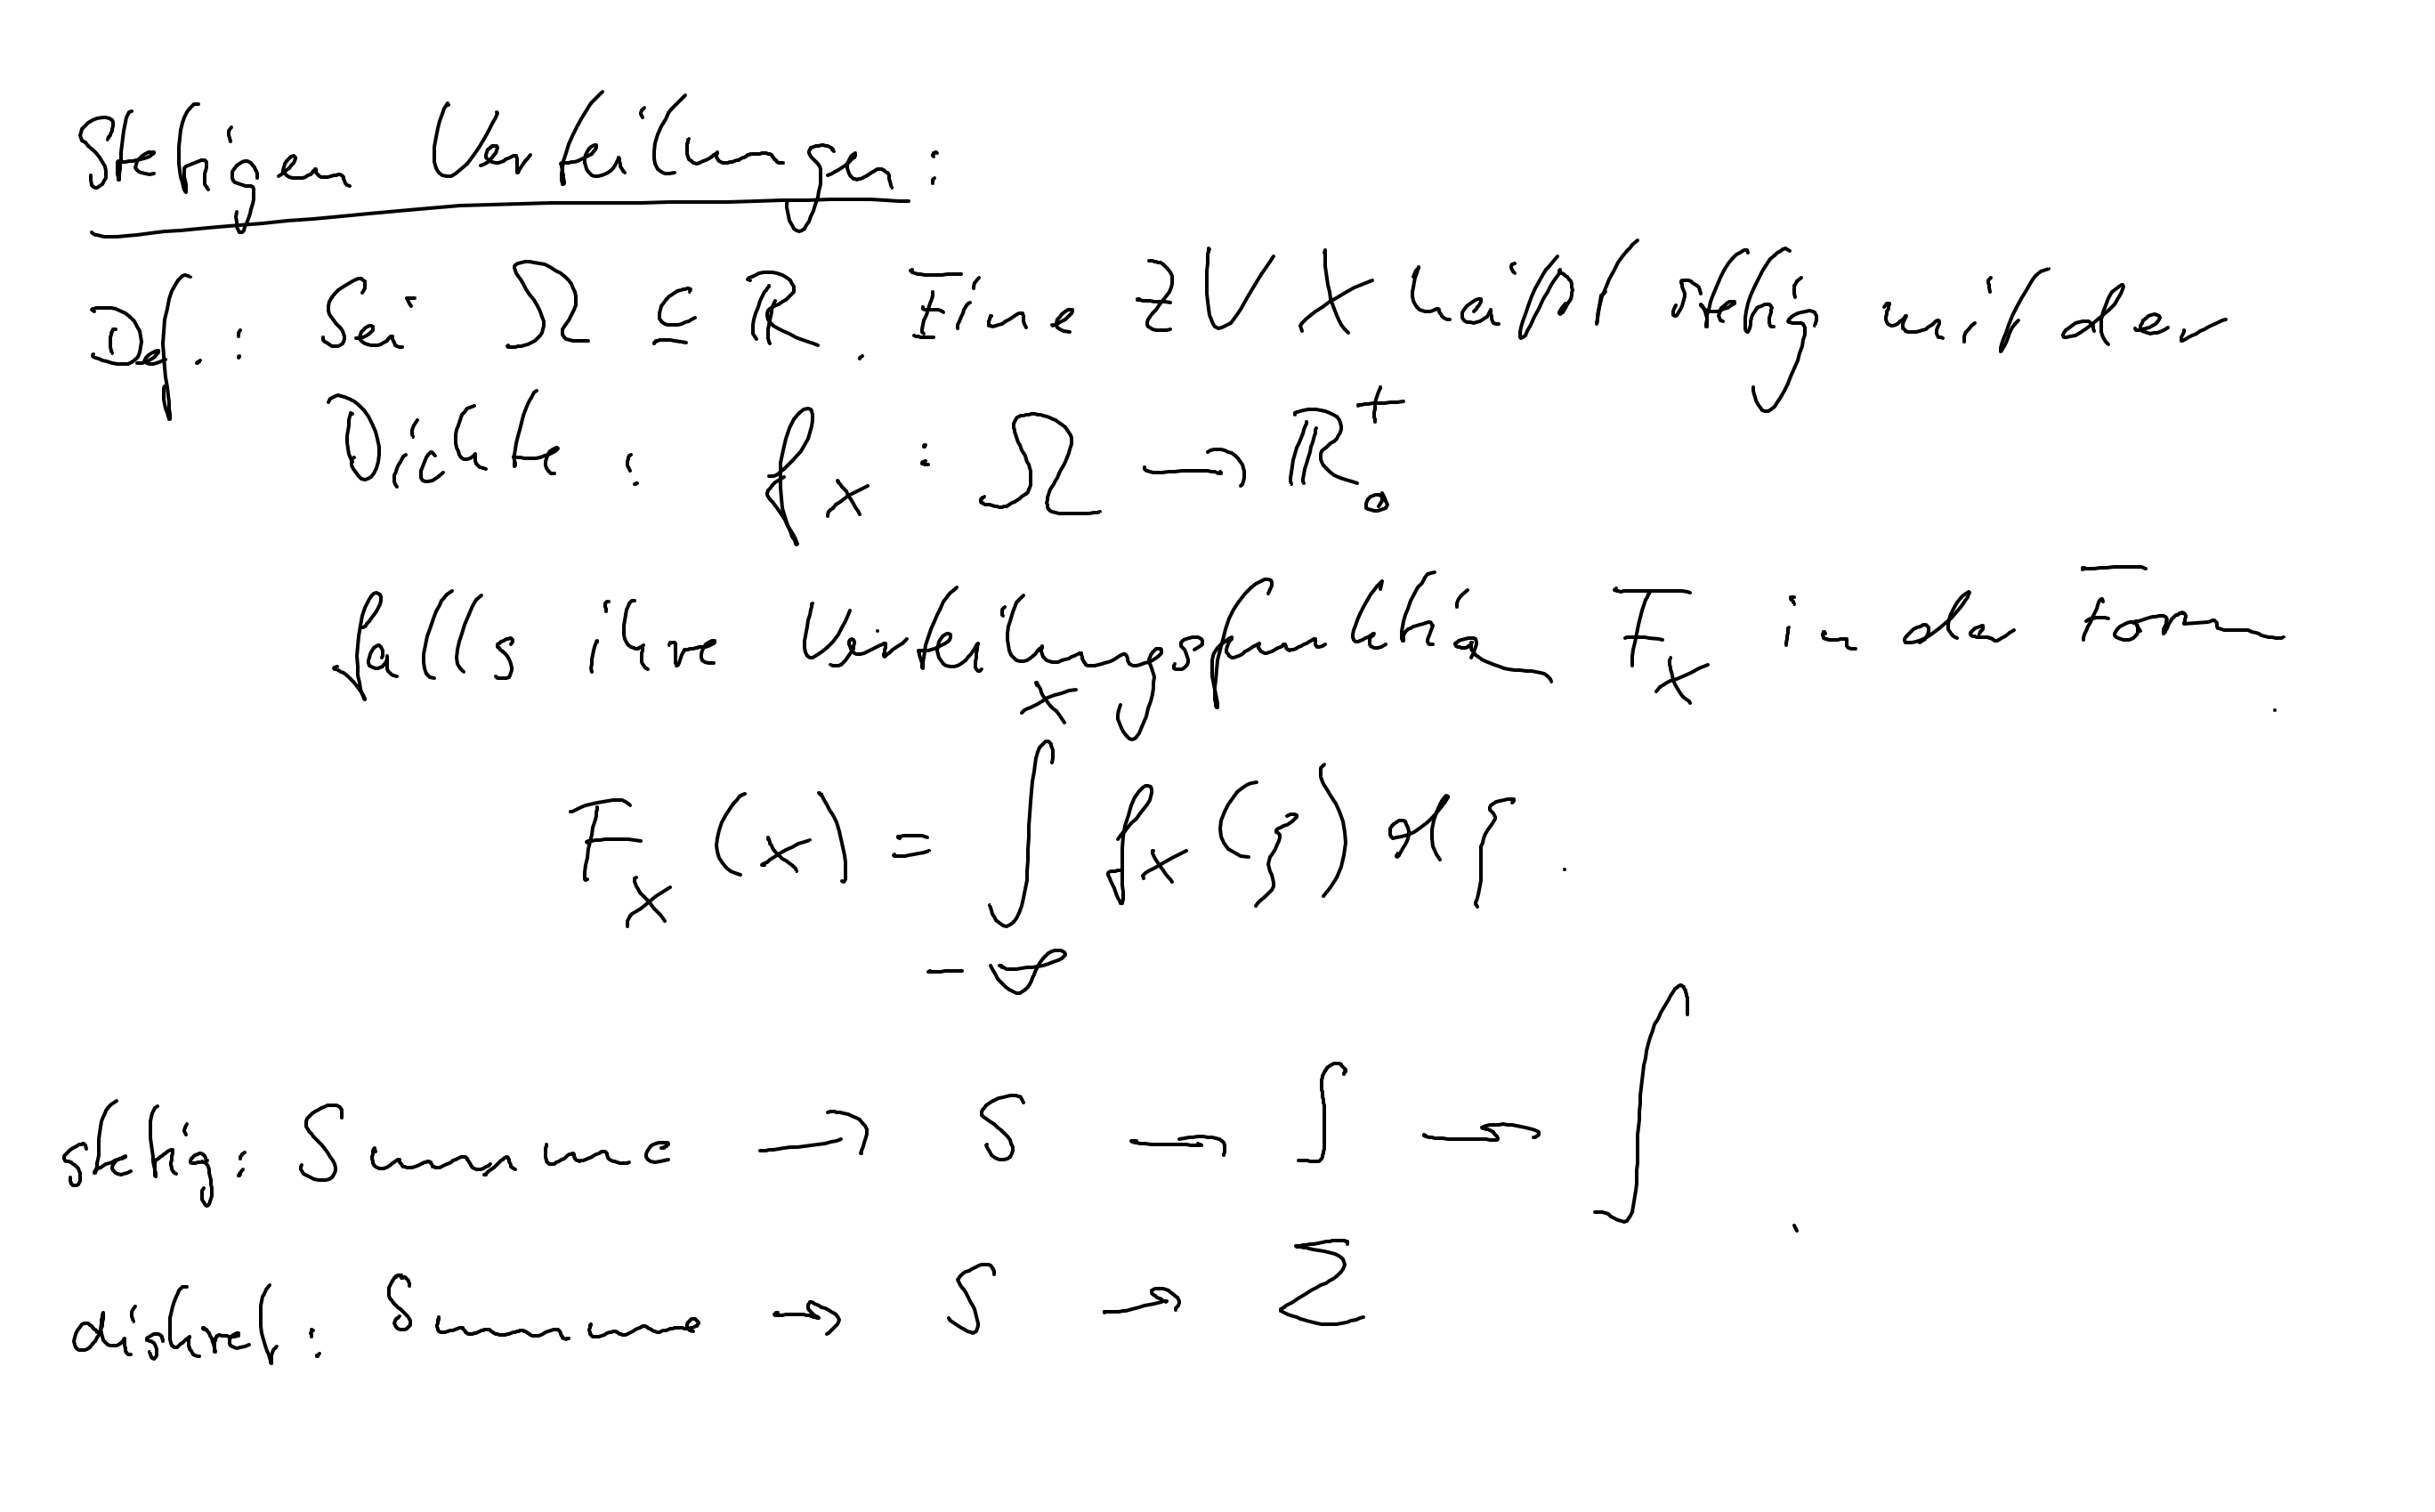 Stetigen Verteilungen:
Def.: Sei Ω ⊆ ℝ. Eine ZV X heißt stetig mit der
Dichte: f_X : Ω → ℝ₀⁺
falls ihre Verteilungsfunktion F_X in der Form
F_X (x) = ∫_{-∞}^{x} f_X (ξ) dξ .
stetig: Summe → S → ∫ → ∫
diskret: Summe → S → Σ